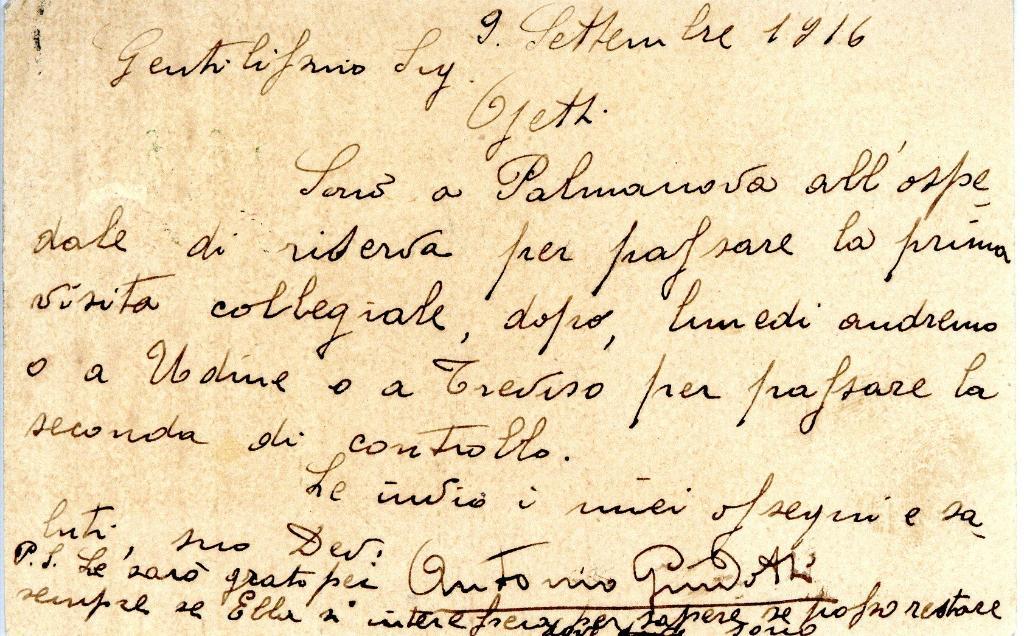 9. Settembre 1916
Gentilissimo Sig.
Ojetti.
Sono a Palmanova all'ospe
dale di riserva per passare la prima
visita collegiale, dopo, lunedi andremo
o a Udine o a Treviso per passare la
seconda di controllo.
Le invio i miei ossequi e sa
luti, suo Dev:
Antonio Guidotti
P.S. Le sarò grato per
sempre se Ella si interesserà per sapere se posso restare
dove sono